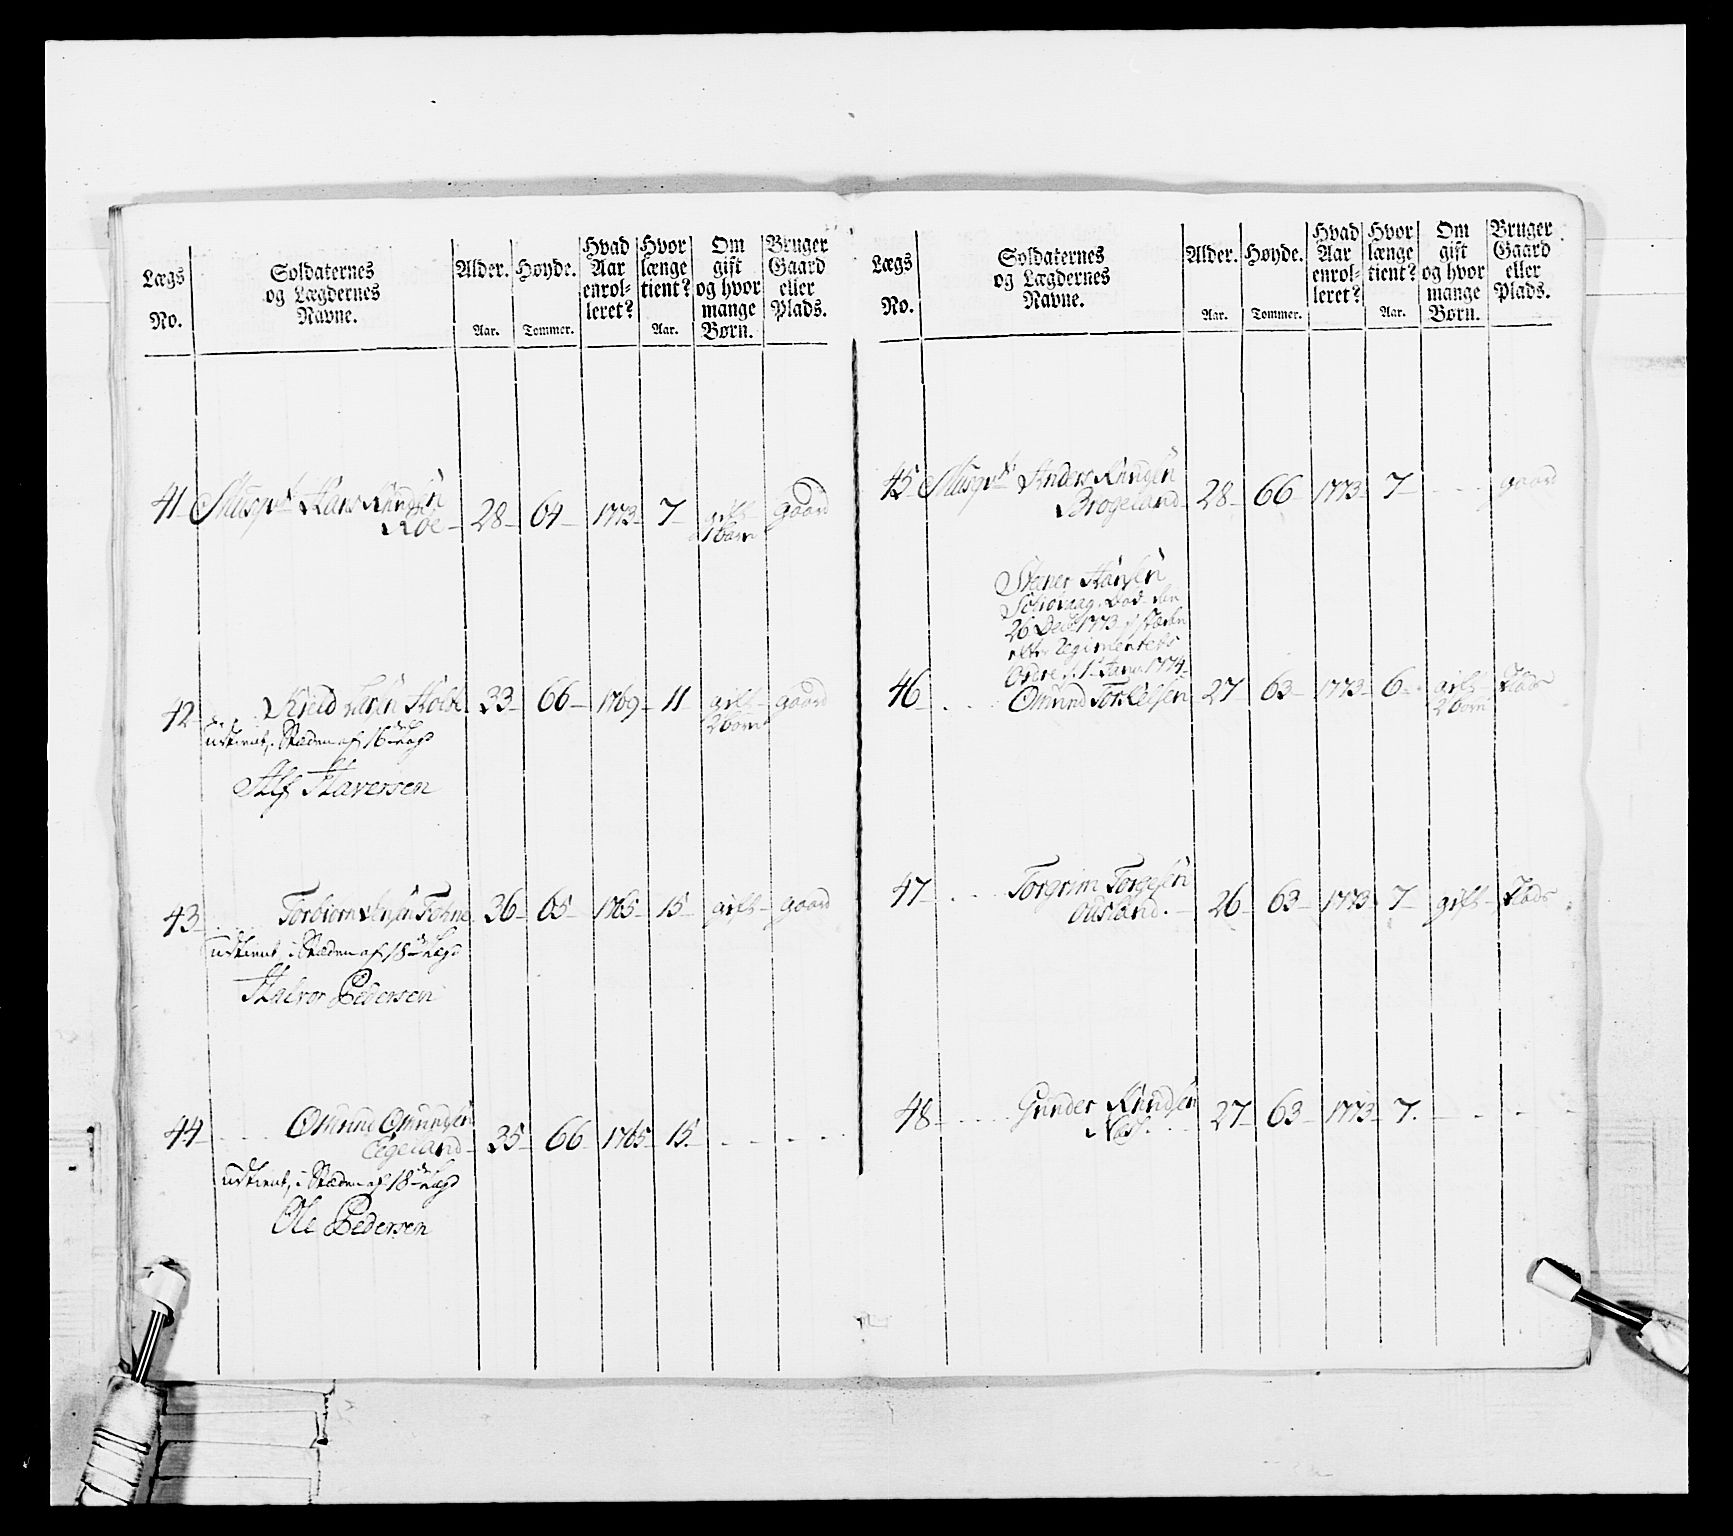 Lægs No.
Soldaternes og Lægdernes Navne.
Alder. Aar.
Høyde. Tommer.
Hvad Aar enrol= leret?
Hvor længe tient? Aar.
Om gift og hvor mange Børn.
Bruger Gaard eller Plads.
41 Musqvt Hans Knudsen
Roe 28 64 1773 7 gift 1 barn gaard
42 Kield 33 66 1769 11 gift 2 børn gaard
udtient, i Stæden af 16de Lægd
Alf Haversen
43 Torbiørn 36 65 1765 15 gift gaard
udtient, i Stæden af 18de Lægd
Halvor Pedersen
44 Omund Omundsen
Egeland 35 66 1765 15
udtient, i Stæden af 18de Lægd
Ole Pedersen
Lægs No.
Soldaternes og Lægdernes Navne.
Alder. Aar.
Høyde. Tommer.
Hvad Aar enrol= leret?
Hvor længe tient? Aar.
Om gift og hvor mange Børn.
Bruger Gaard eller Plads.
45 Musqvt Anders Knudsen
Brogeland 28 66 1773 7 gaard
Hansen
Død den
26 Decb 1773, i Stæden
efter Regimentets
Ordre d. 1 Janu 1774
46 Omund Torkelsen 27 63 1773 6 gift 2 børn Plads
47 Torgrim Torgesen
Ousland. 26 63 1773 7 gift Plads
48 Gunder Knudsen
27 63 1773 7.